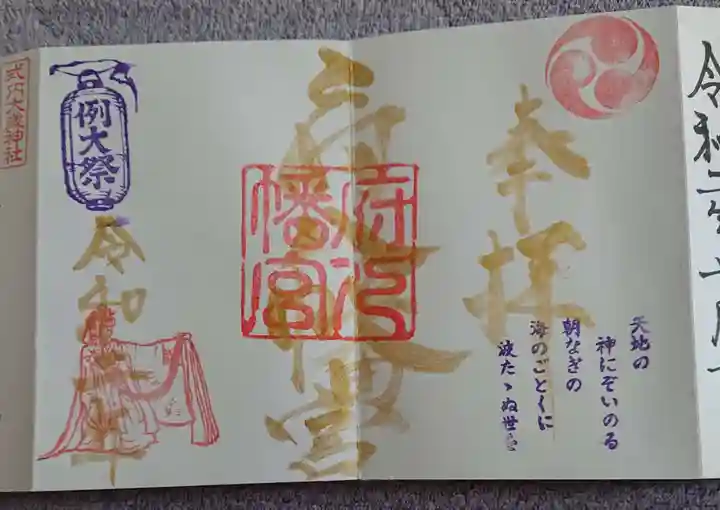 令和二年
奉拝
天地の
神にぞいのる
朝なぎの
海のごとくに
波たゝぬ世を
府八幡宮
府八幡宮
例大祭
令和
年
式内大歳神社